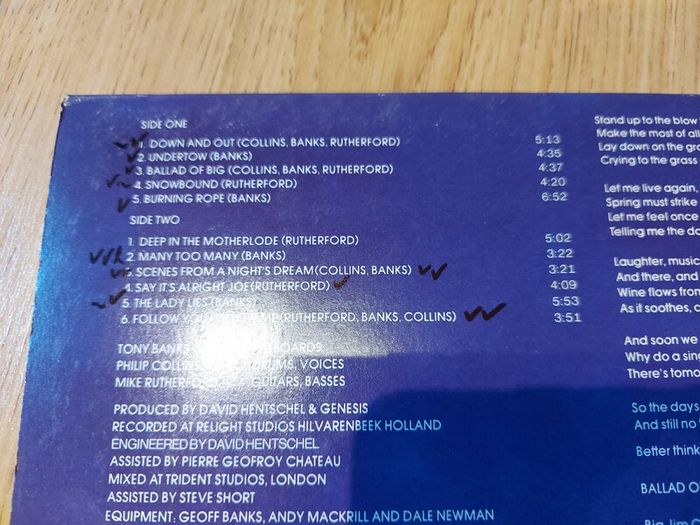 SIDE ONE
1. DOWN AND OUT (COLLINS, BANKS, RUTHERFORD) 5:13
2. UNDERTOW (BANKS) 4:35
3. BALLAD OF BIG (COLLINS, BANKS, RUTHERFORD) 4:37
4. SNOWBOUND (RUTHERFORD) 4:20
5. BURNING ROPE (BANKS) 6:52
SIDE TWO
1. DEEP IN THE MOTHERLODE (RUTHERFORD) 5:02
2. MANY TOO MANY (BANKS) 3:22
3. SCENES FROM A NIGHT'S DREAM (COLLINS, BANKS) 3:21
4. SAY IT'S ALRIGHT JOE (RUTHERFORD) 4:09
5. THE LADY LIES (BANKS) 5:53
6. FOLLOW (RUTHERFORD, BANKS, COLLINS) 3:51
TONY BANKS
PHILIP COLLINS DRUMS, VOICES
MIKE RUTHERFORD GUITARS, BASSES
PRODUCED BY DAVID HENTSCHEL & GENESIS
RECORDED AT RELIGHT STUDIOS HILVARENBEEK HOLLAND
ENGINEERED BY DAVID HENTSCHEL
ASSISTED BY PIERRE GEOFROY CHATEAU
MIXED AT TRIDENT STUDIOS, LONDON
ASSISTED BY STEVE SHORT
EQUIPMENT: GEOFF BANKS, ANDY MACKRILL AND DALE NEWMAN
Stand up to the blow
Make the most of all
Lay down on the
Crying to the grass
Let me live again,
Spring must strike
Let me feel once
Telling me the
Laughter, music
And there, and
Wine flows from
As it soothes,
And soon we
Why do a
There's
So the days
And still no
Better think
BALLAD
Big Jim